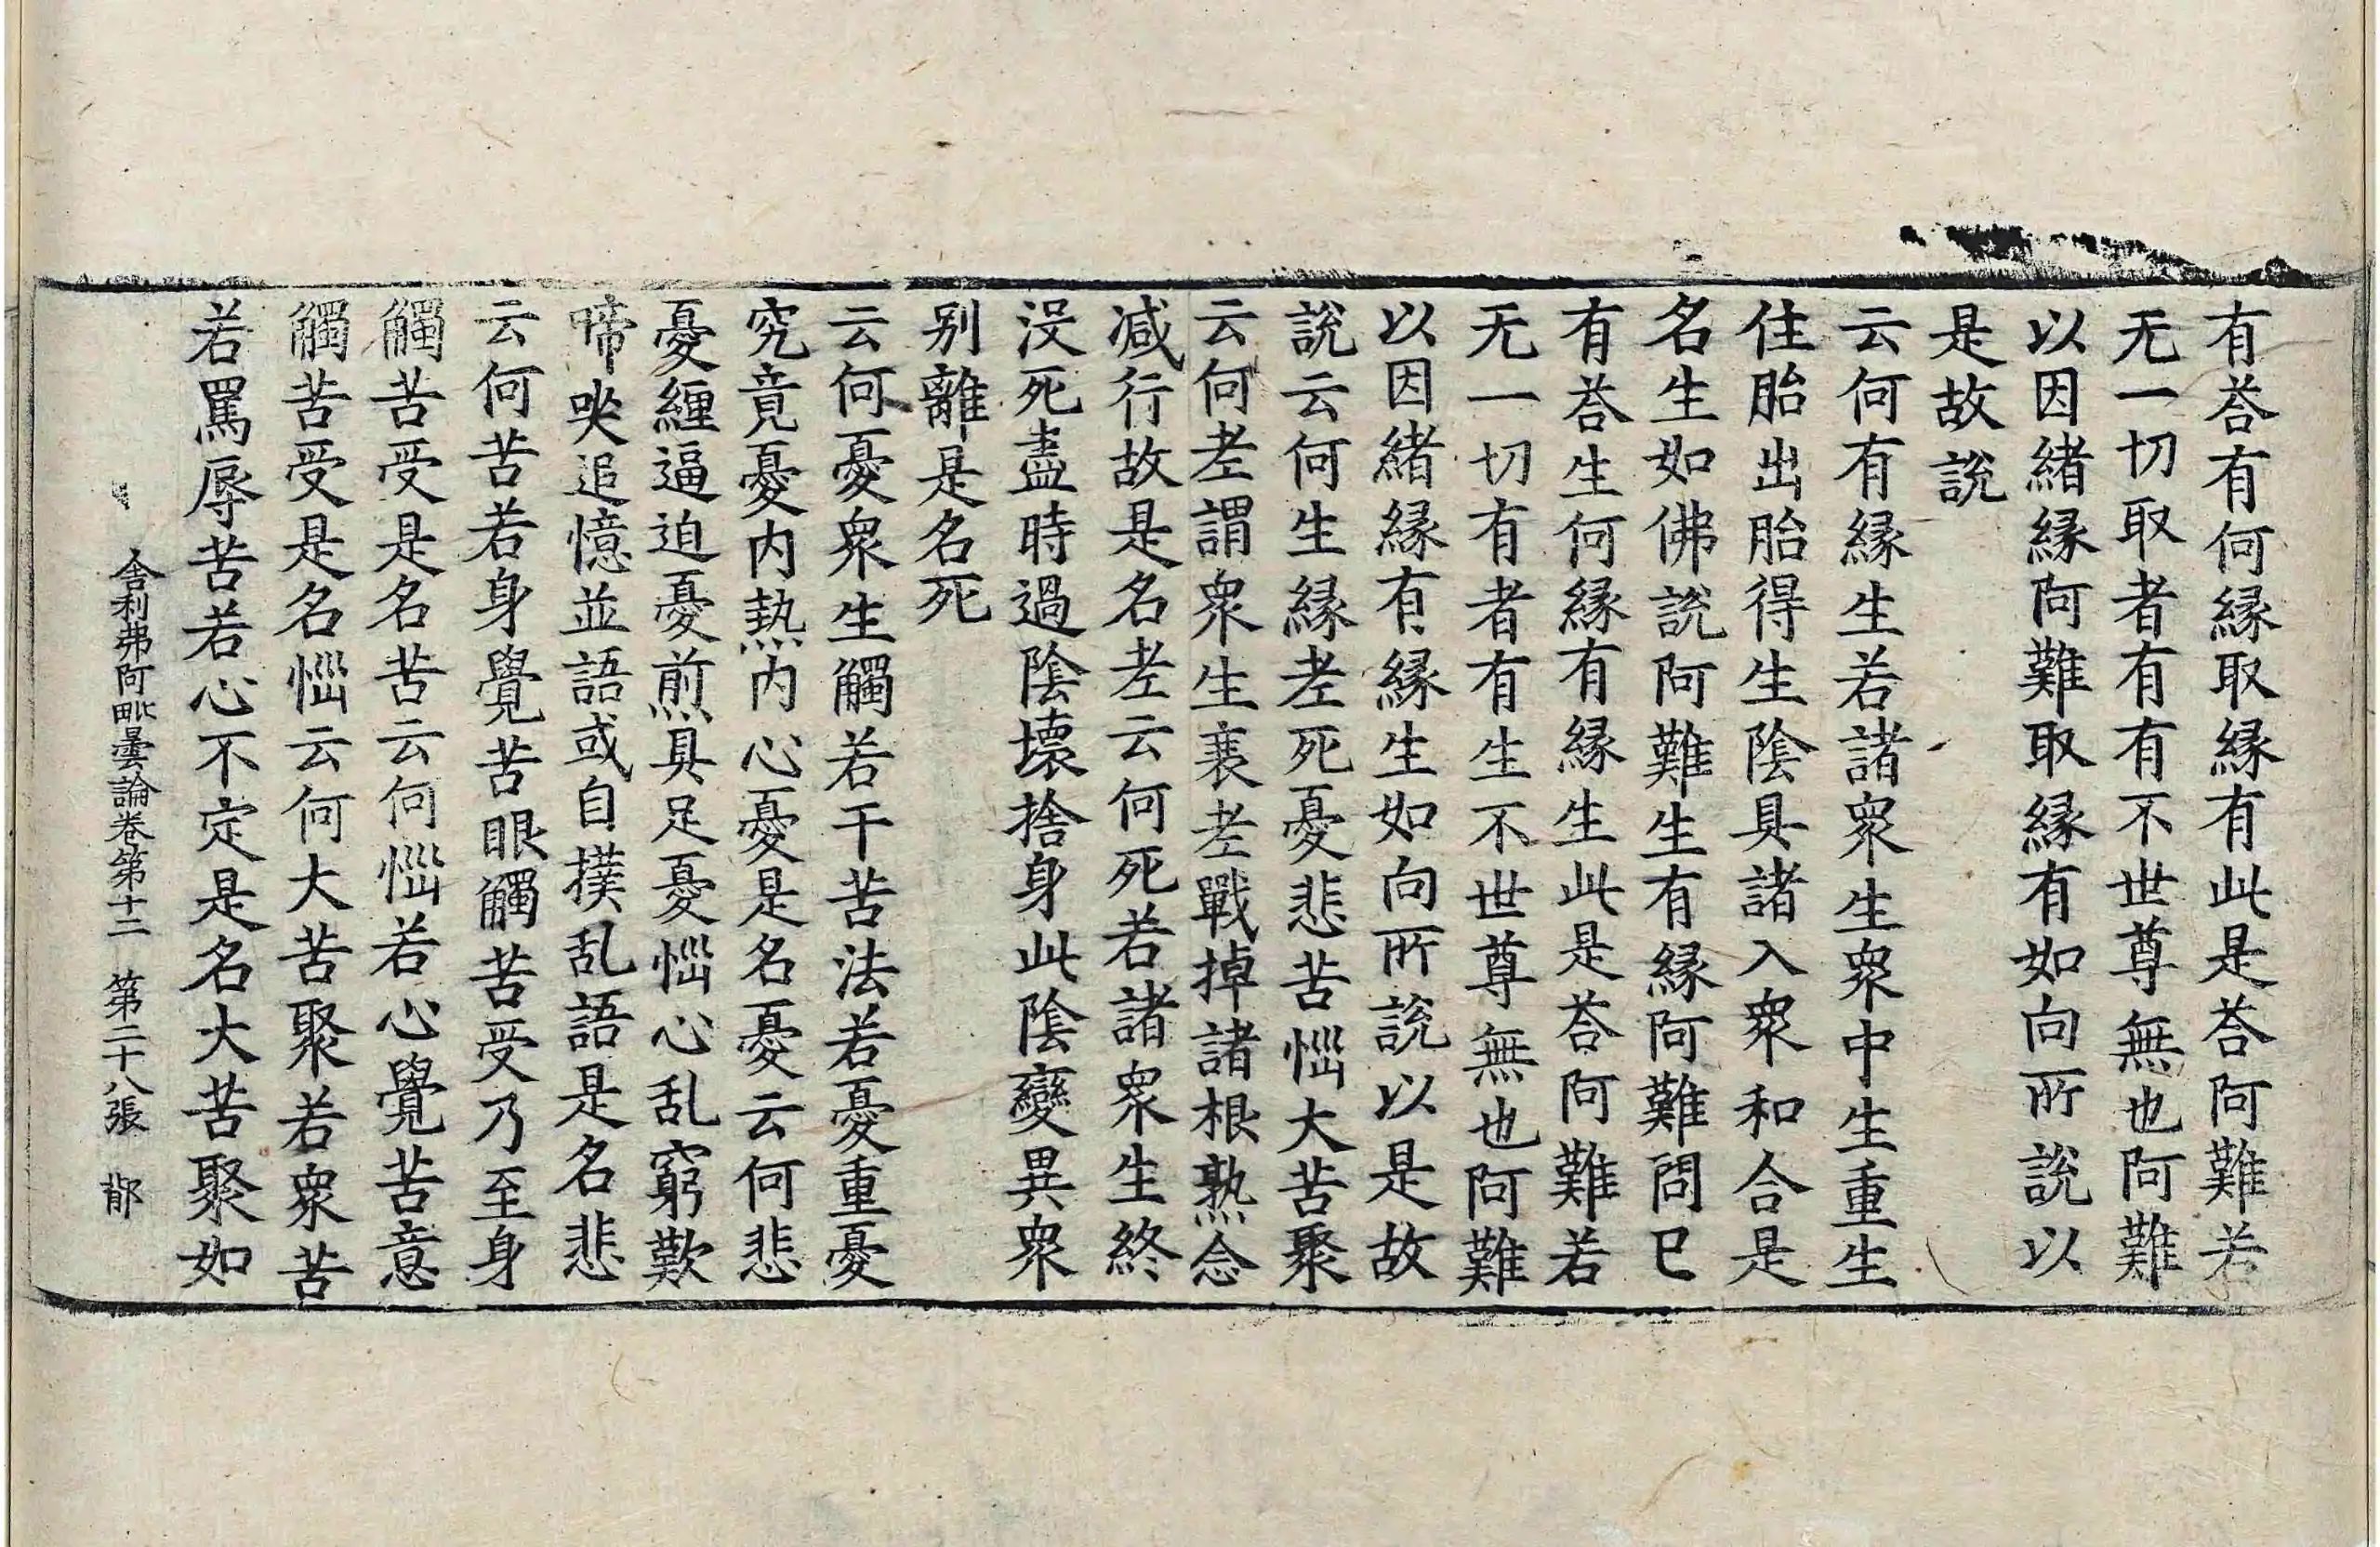 有荅有何縁取縁有此是荅阿難若
无一切取者有有不世尊無也阿難
以因緒縁阿難取縁有如向所説以
是故説
云何有縁生若諸衆生衆中生重生
住胎出胎得生陰具諸入衆和合是
名生如佛説阿難生有縁阿難問已
有荅生何縁有縁生此是荅阿難若
无一切有者有生不世尊無也阿難
以因緒縁有縁生如向所説以是故
説云何生縁老死憂悲苦惱大苦聚
云何老謂衆生衰老戰掉諸根熟命
减行故是名老云何死若諸衆生終
没死盡時過陰壞捨身此陰變異衆
別離是名死
云何憂衆生觸若干苦法若憂重憂
究竟憂内熱内心憂是名憂云何悲
憂纏逼迫憂煎具足憂惱心乱窮歎
啼哭追憶並語或自撲乱語是名悲
云何苦若身覺苦眼觸苦受乃至身
觸苦受是名苦云何惱若心覺苦意
觸苦受是名惱云何大苦聚若衆苦
若罵辱苦若心不定是名大苦聚如
舎利弗阿毗曇論卷第十二　第二十八張　鄁